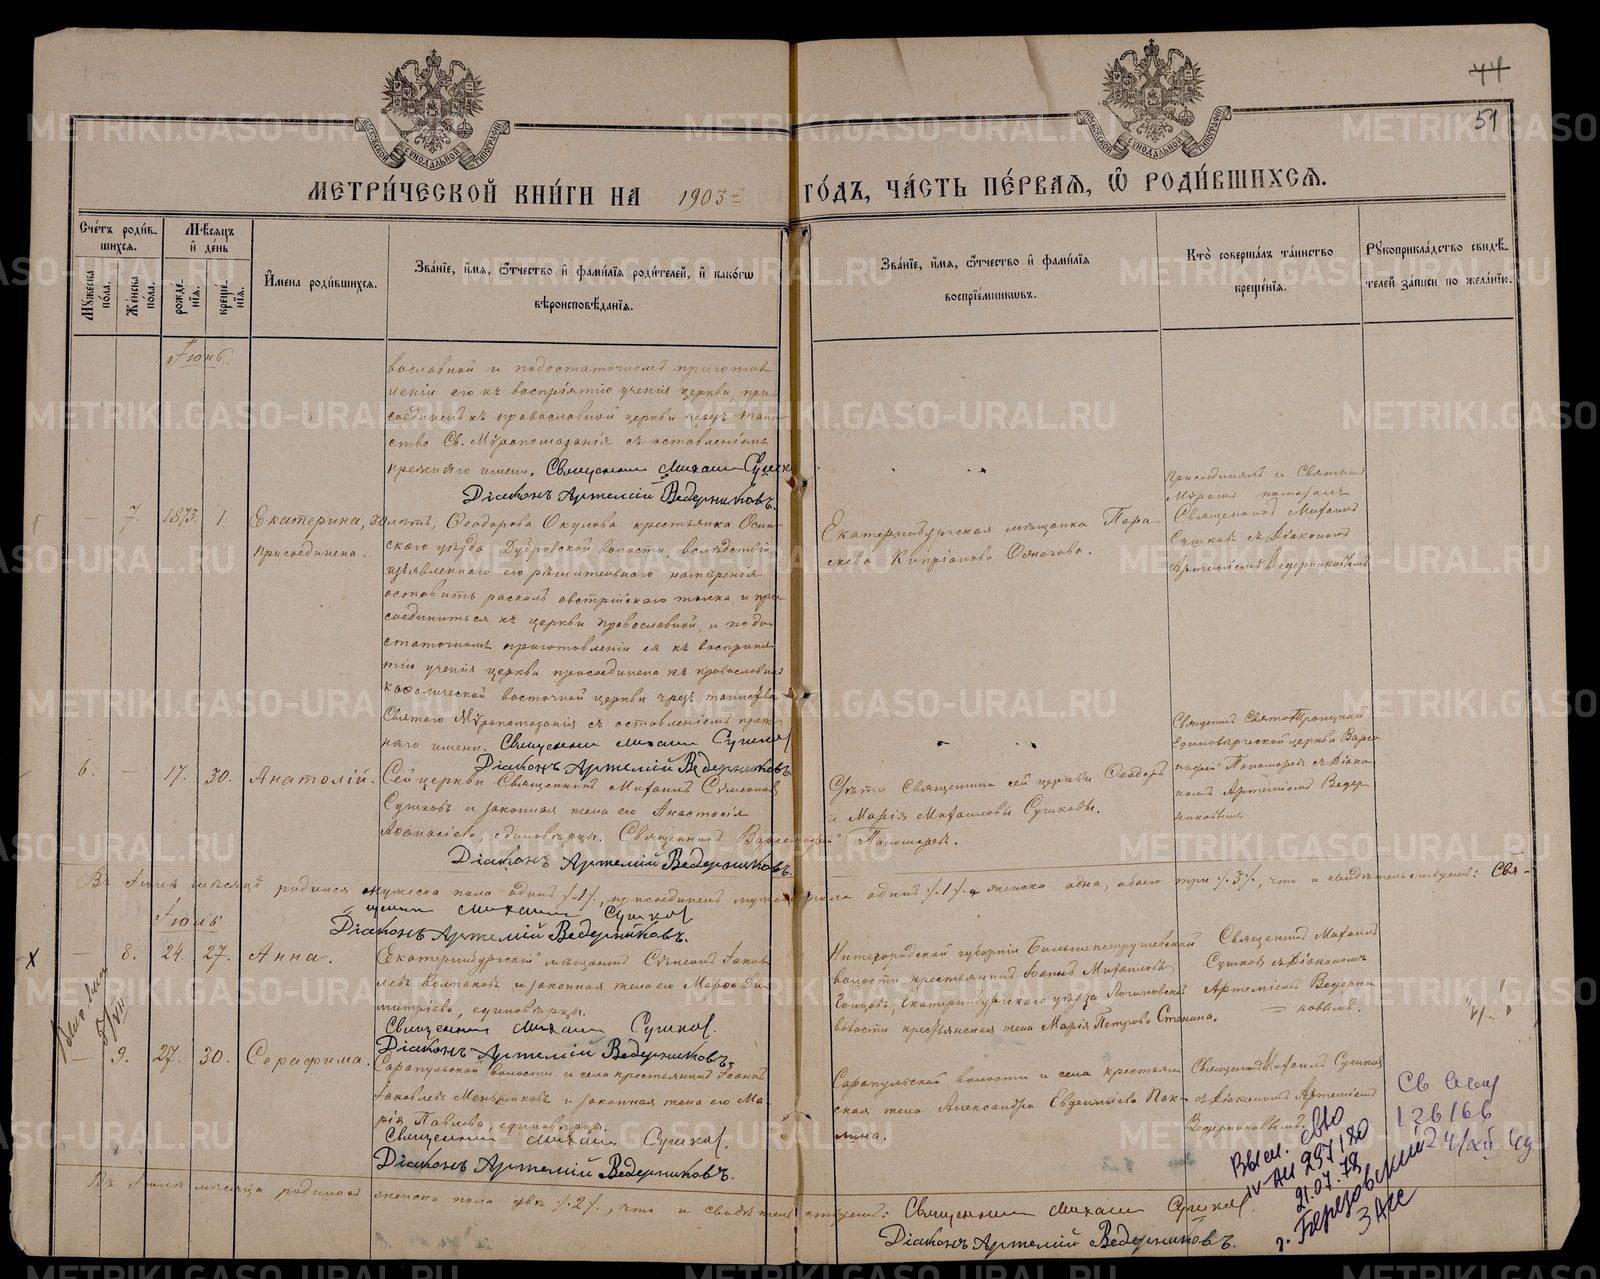 44
51
МОСКОВСКОЙ СУНОДАЛЬНОЙ ТИПОГРАФІИ
МОСКОВСКОЙ СУНОДАЛЬНОЙ ТИПОГРАФІИ
МЕТРИ́ЧЕСКОЙ КНИ́ГИ НА 1903 ГО́ДЪ, ЧА́СТЬ ПЕ́РВАѦ, Ѡ҆ РОДИ́ВШИХСѦ.
Сче́тъ роди́в-
шихсѧ.
Мꙋжеска по́ла.
Же́нска по́ла.
Мѣ́сѧцъ
и҆ де́нь
рожде́-
нїѧ.
креще́-
нїѧ.
И҆мена роди́вшихсѧ.
Зва́нїе, и҆́мѧ, ѻ҆́тчество и҆ фами́лїѧ роди́телей, и҆ како́гѡ
вѣроисповѣ́данїѧ.
Зва́нїе, и҆́мѧ, ѻ҆́тчество и҆ фами́лїѧ
воспрїе́мникѡвъ.
Кто̀ соверша́лъ та́инство
креще́нїѧ.
Рꙋкоприкла́дство свидѣ́-
телей за́писи по жела́нїю.
Іюнь.
вославной и подостаточномъ приготов
леніи его къ воспріятію ученія церкви, при-
соединенъ къ православной церкви чрезъ таин-
ство Св. Мѵропомазанія съ оставленіемъ
прежняго имени. Священникъ Михаилъ Сушков
Діаконъ Артемій Ведерниковъ.
— 7. 1873. 1. Екатерина, 30 лѣтъ, Ѳеодорова Окулова крестьянка Осин-
присоединена.
скаго уѣзда, Дубровской волости, вслѣдствіи
изъявленнаго ею рѣшительнаго намѣренія
оставить расколъ австрійскаго толка и при
соединиться къ церкви православной, и подо
статочномъ приготовленіи ея къ воспрія
тію ученія церкви присоединена къ православной
каѳолической восточной церкви чрезъ таинство
Святаго Мѵропомазанія съ оставленіемъ преж-
няго имени. Священник Михаил Сушков
Діаконъ Артемій Ведерниковъ.
Екатеринбургская мѣщанка Пара-
скева Кипріанова Ожегова.
Присоединялъ и Святымъ
Мѵромъ помазалъ
Священникъ Михаилъ
Сушковъ съ Діакономъ
Артеміемъ Ведерниковымъ
6. — 17. 30. Анатолій. Сей церкви Священникъ Михаилъ Сѵмеоновъ
Сушковъ и законная жена его Анастасія
Аѳанасіева, единовѣрцы. Священникъ Варсонофій Пономаревъ.
Діаконъ Артемій Ведерниковъ.
Дѣти Священника сей церкви Ѳеодоръ
и Марія Михаиловы Сушковы.
Священникъ Свято-Троицкой
Единовѣрческой церкви Варсо
нофій Пономаревъ съ Діако-
номъ Артеміемъ Ведер
никовымъ
Въ Іюнѣ мѣсяцѣ родился мужеска пола одинъ /.1/., присоединенъ мужеска пола одинъ /.1/. и женска одна, обоего три /.3/., что и свидѣтельствуемъ: Свя-
щенник Михаил Сушков
Діаконъ Артемій Ведерниковъ.
Іюль
х — 8. 24. 27. Анна. Екатеринбургскій мѣщанинъ Сѵмеонъ Іаков
левъ Колпаковъ и законная жена его Марѳа Ди-
митріева, единовѣрцы.
Священник Михаил Сушков.
Діаконъ Артемій Ведерниковъ.
Нижегородской губерніи Большепетрушевской
волости крестьянинъ Іоаннъ Михаиловъ
волости крестьянская жена Марія Петрова
Священникъ Михаилъ
Сушковъ съ Діакономъ
Артеміемъ Ведерни
ковымъ.
— 9. 27. 30. Серафима. Сарапульской волости и села крестьянинъ Іоаннъ
Іаковлевъ Меньшиковъ и законная жена его Ма-
рія Павлова, единовѣрцы.
Священник Михаил Сушков.
Діаконъ Артемій Ведерниковъ.
Сарапульской волости и села крестьян
ская жена Александра Евдокимова Пак-
лина.
Священникъ Михаилъ Сушков
съ Діакономъ Артеміемъ
Ведерниковымъ.
Въ Іюлѣ мѣсяцѣ родилось женска пола двѣ /.2/., что и свидѣтельствуемъ: Священник Михаил Сушков.
Діаконъ Артемій Ведерниковъ.
Выд. свво
IV-АИ 297180
21.07.78
г. Березовский
ЗАГС